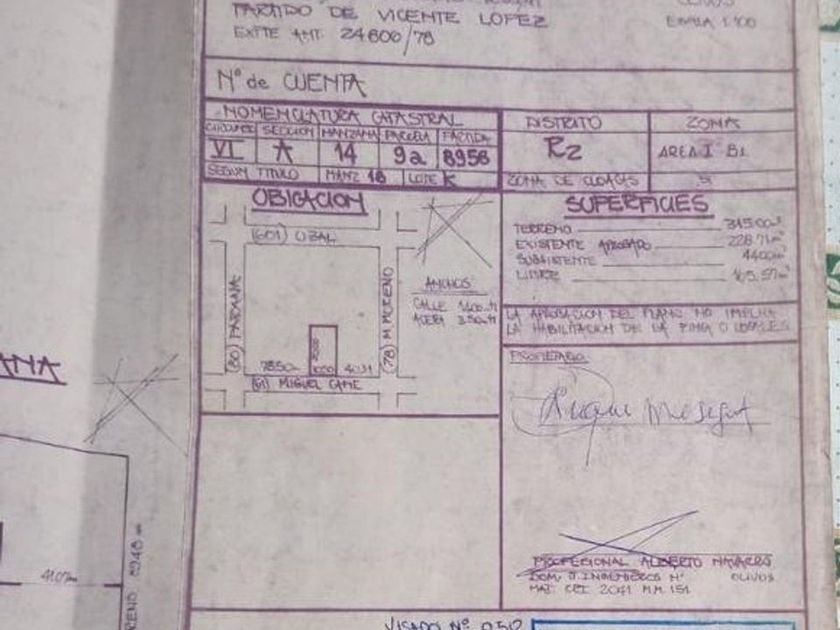 PARTIDO DE VICENTE LOPEZ
EXPTE ANT. 24600/78
Nº de CUENTA
NOMENCLATURA CATASTRAL
SECCION MANZANA PARCELA PARTIDA
VI A 14 9a 8956
SEGUN TITULO MANZ 18 LOTE K
DISTRITO ZONA
R2 AREA I B1
ZONA DE CLOACAS SI
UBICACION
(601) UZAL
(80) PARANA
(78) M MORENO
(61) MIGUEL CANE
ANCHOS
CALLE
ACERA
SUPERFICIES
TERRENO
EXISTENTE APROBADO 228.71m²
SUBSISTENTE
LIBRE
LA APROBACION DEL PLANO NO IMPLICA
LA HABILITACION DE LA FINCA O LOCALES
PROPIETARIO
PROFESIONAL ALBERTO NAVARRO
DOM. J. INGENIEROS Nº OLIVOS
MAT. CPI. 2041 M.M. 151
VISADO Nº
ANA